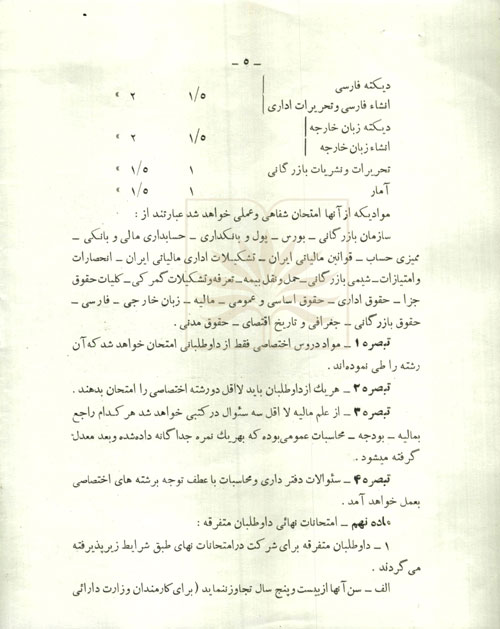 ـ ۵ ـ
دیکته فارسی
انشاء فارسی و تحریرات اداری ۱/۵ ۲ «
دیکته زبان خارجه
انشاء زبان خارجه ۱/۵ ۲ «
تحریرات و نشریات بازرگانی ۱ ۱/۵ «
آمار ۱ ۱/۵ «
موادیکه از آنها امتحان شفاهی و عملی خواهد شد عبارتند از :
سازمان بازرگانی ـ بورس ـ پول و بانکداری ـ حسابداری مالی و بانکی ـ
ممیزی حساب ـ قوانین مالیاتی ایران ـ تشکیلات اداری مالیاتی ایران ـ انحصارات
و امتیازات ـ شیمی بازرگانی ـ حمل و نقل بیمه ـ تعرفه و تشکیلات گمرکی ـ کلیات حقوق
جزا ـ حقوق اداری ـ حقوق اساسی و عمومی ـ مالیه ـ زبان خارجی ـ فارسی ـ
حقوق بازرگانی ـ جغرافی و تاریخ اقتصادی ـ حقوق مدنی .
تبصره ۱ ـ مواد دروس اختصاصی فقط از داوطلبانی امتحان خواهد شد که آن
رشته را طی نموده‌اند .
تبصره ۲ ـ هر یك از داوطلبان باید لااقل دو رشته اختصاصی را امتحان بدهند .
تبصره ۳ ـ از علم مالیه لا اقل سه سئوال در کتبی خواهد شد هر کدام راجع
بمالیه ـ بودجه ـ محاسبات عمومی بوده که بهر یك نمره جداگانه داده شده و بعد معدل
گرفته میشود .
تبصره ۴ ـ سئوالات دفتر داری و محاسبات با عطف توجه برشته های اختصاصی
بعمل خواهد آمد .
ماده نهم ـ امتحانات نهائی داوطلبان متفرقه :
۱ ـ داوطلبان متفرقه برای شرکت در امتحانات نهای طبق شرایط زیر پذیرفته
می گردند .
الف ـ سن آنها از بیست و پنج سال تجاوز ننماید ( برای کارمندان وزارت دارائی